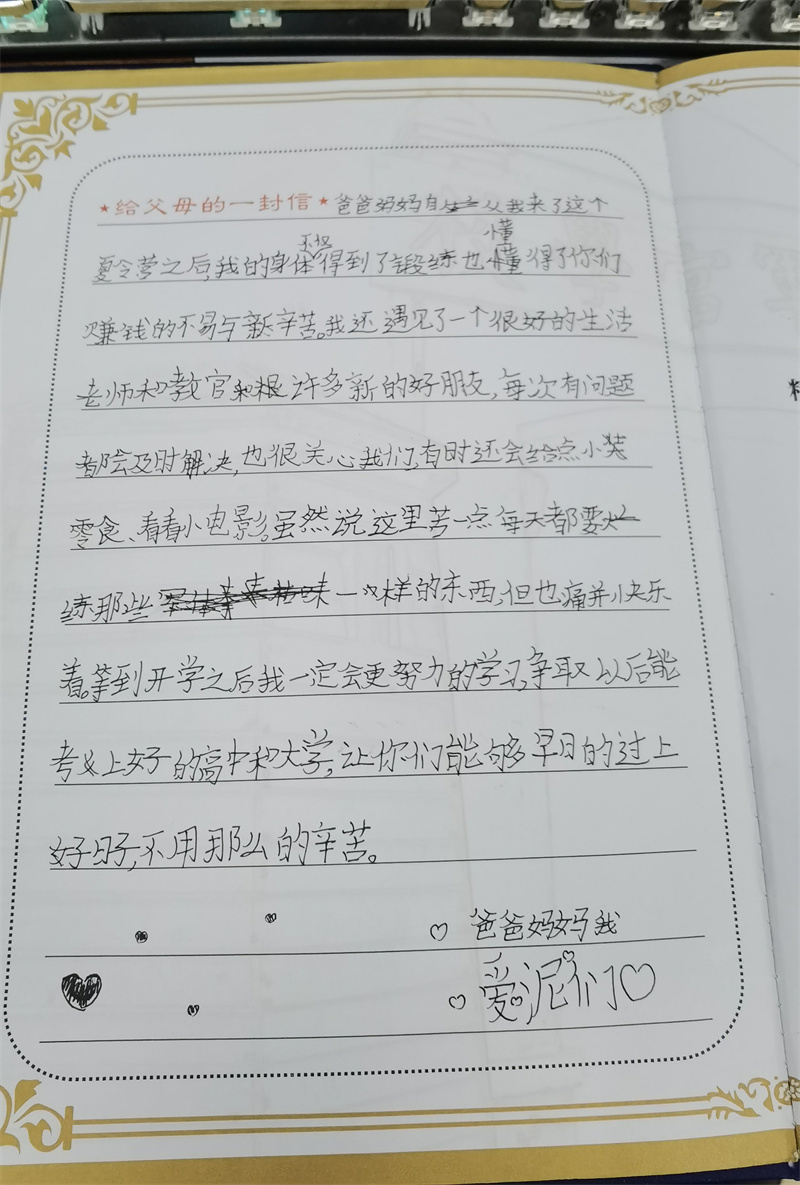 ★给父母的一封信★爸爸妈妈自从我来了这个
不仅 懂
夏令营之后,我的身体得到了锻练也懂得了你们
赚钱的不易与辛苦。我还遇见了一个很好的生活
老师和教官和很许多新的好朋友,每次有问题
都会及时解决,也很关心我们,有时还会给点小
零食、看看小电影。虽然说这里苦一点每天都要
练那些一样的东西,但也痛并快乐
着。等到开学之后我一定会更努力的学习,争取以后能
考上好的高中和大学,让你们能够早日的过上
好日子,不用那么的辛苦。
爸爸妈妈我
爱泥们